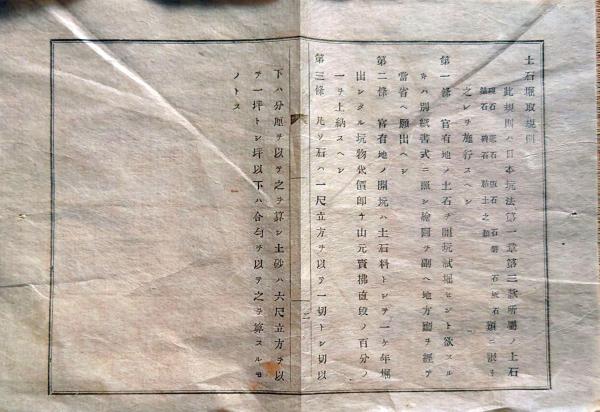 土石堀取規則
此規則ハ日本坑法第一章第三款所屬ノ土石
之レヲ施行スヘシ
第一條 官有地ノ土石ヲ開坑試堀セント欲スル
キハ別紙書式ニ照シ繪圖ヲ副ヘ地方廳ヲ經テ
當省ヘ願出ヘシ
第二條 官有地ノ開坑ハ土石料トシテ一ケ年堀
出シタル坑物代價即チ山元賣拂直段ノ百分ノ
一ヲ上納スヘシ
第三條 凡ソ石ハ一尺立方ヲ以テ一切トシ切以
下ハ分厘ヲ以テ之ヲ算シ土砂ハ六尺立方ヲ以
テ一坪トシ坪以下ハ合勺ヲ以テ之ヲ算スルモ
ノトス